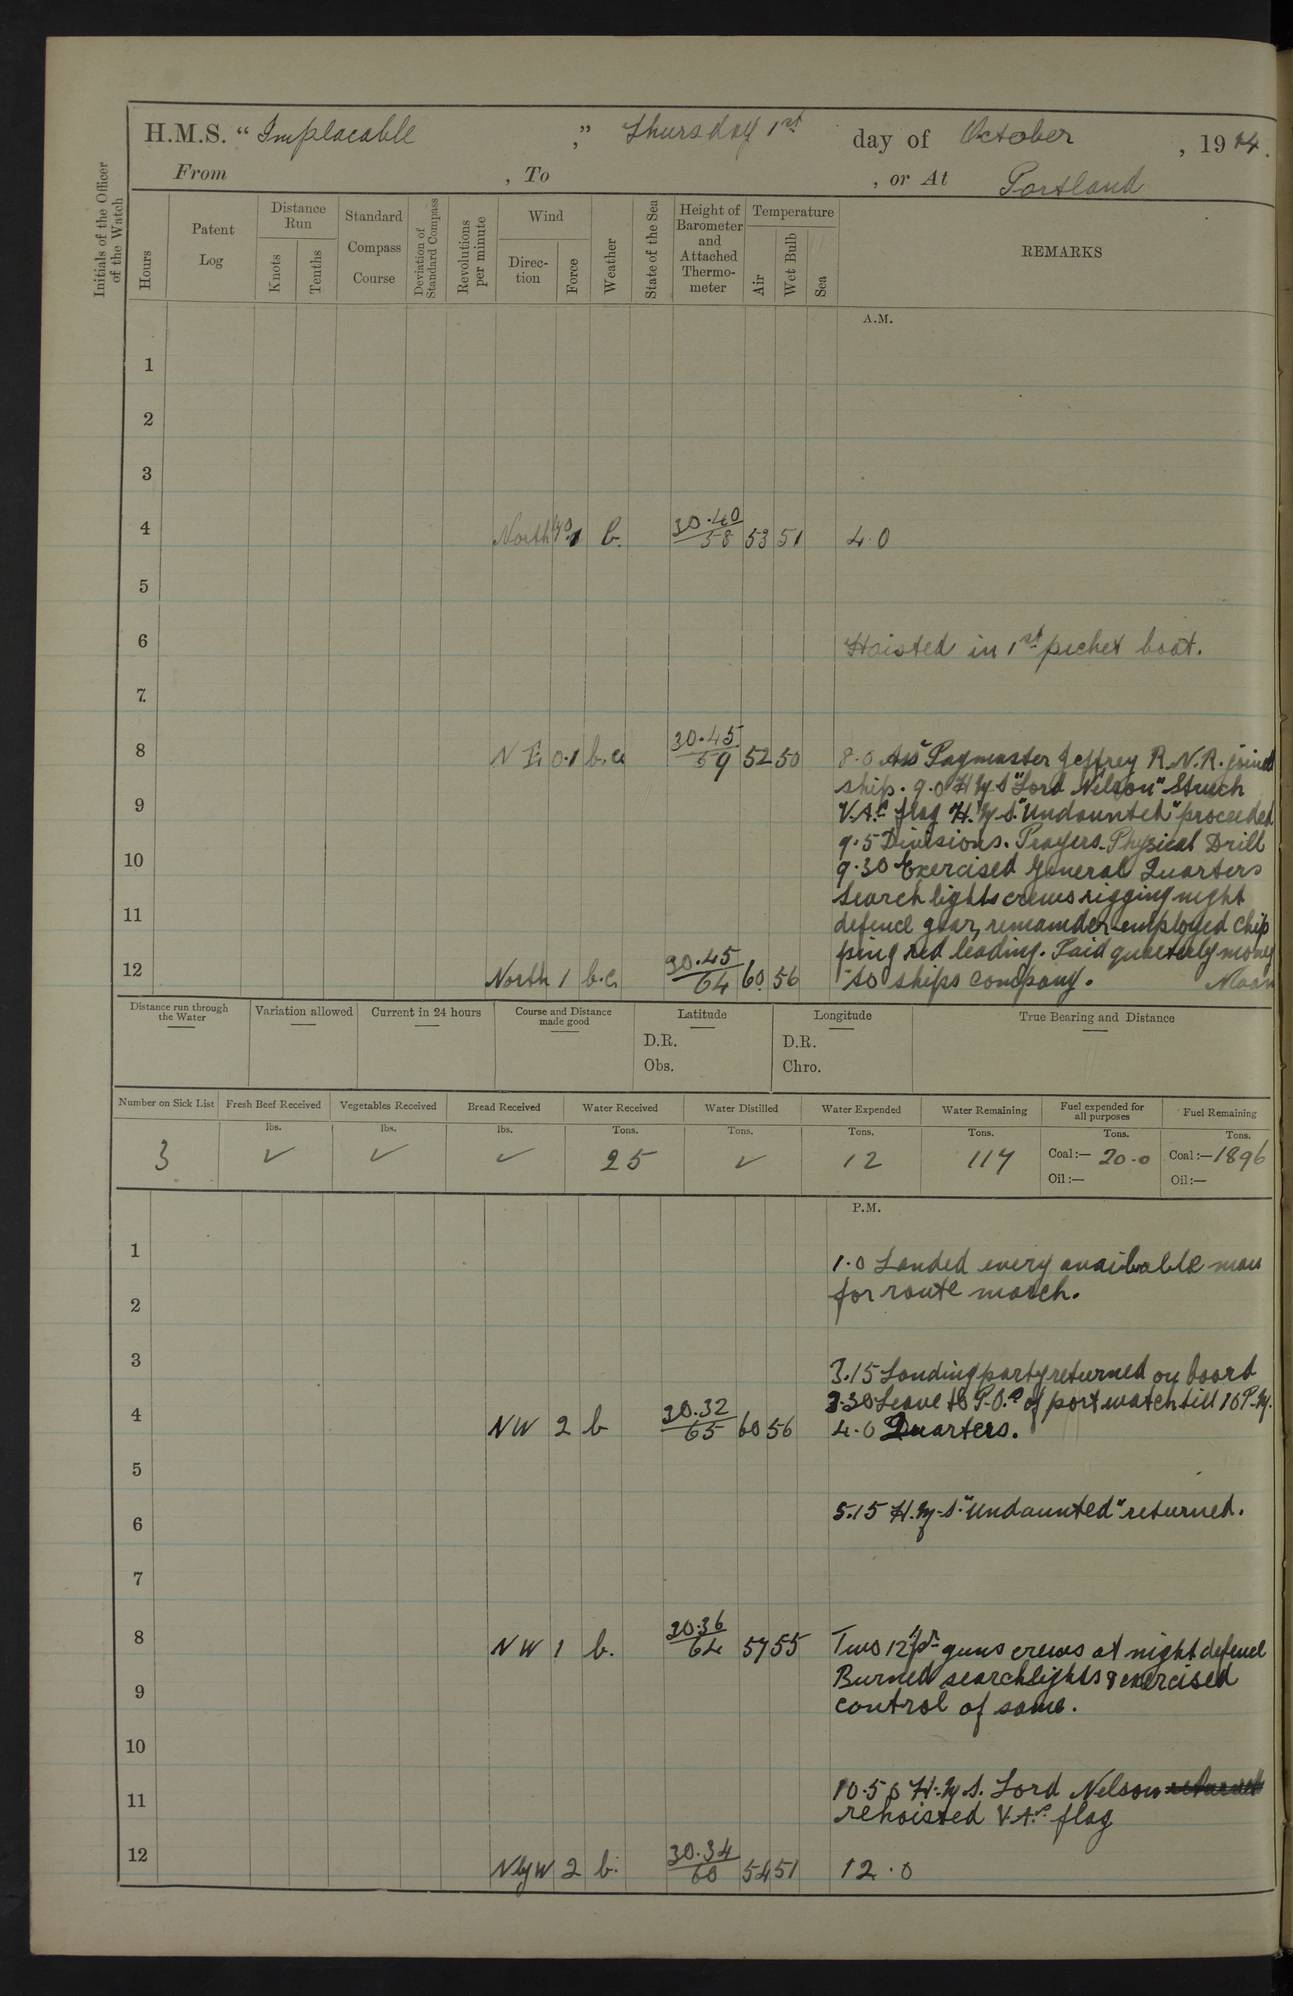 H.M.S. “ Implacable ” , Thursday 1st day of October , 1914.
From , To , or At Portland
Initials of the Officer of the Watch
Hours
Patent Log
Distance Run
Knots
Tenths
Standard Compass Course
Deviation of Standard Compass
Revolutions per minute
Wind
Direction
Force
Weather
State of the Sea
Height of Barometer and Attached Thermometer
Temperature
Air
Wet Bulb
Sea
REMARKS
A.M.
1
2
3
4 North b. 30.40 58 53 51 4.0
5
6 Hoisted in 1st picket boat.
7
8 N E 0.1 b.c 30.45 59 52 50 8.0 Asst Paymaster Jeffrey R.N.R. joined
ship. 9.0 H M S "Lord Nelson" Struck
9 V.A.s flag H.M.S. "Undaunted" proceeded
9.5 Divisions. Prayers. Physical Drill
10 9.30 Exercised General Quarters
Search lights crews rigging night
11 defence gear, remainder employed chip
ping red leading. Paid quarterly money
12 North 1 b.c. 30.45 64 60 56 to ships company. Noon
Distance run through the Water
Variation allowed
Current in 24 hours
Course and Distance made good
Latitude
D.R.
Obs.
Longitude
D.R.
Chro.
True Bearing and Distance
Number on Sick List Fresh Beef Received Vegetables Received Bread Received Water Received Water Distilled Water Expended Water Remaining Fuel expended for all purposes Fuel Remaining
lbs. lbs. lbs. Tons. Tons. Tons. Tons. Tons. Tons.
3 ✓ ✓ ✓ 25 ✓ 12 117 Coal:— 20.0 Coal:— 1896
Oil:— Oil:—
P.M.
1 1.0 Landed every availbable man
2 for route march.
3 3.15 Landing party returned on board
3.30 Leave to P.O.s of port watch till 10 P.M.
4 NW 2 b 30.32 65 60 56 4.0 Quarters.
5
5.15 H.M.S. "Undaunted" returned.
6
7
8 NW 1 b. 30.36 64 57 55 Two 12 pr guns crews at night defence
Burned searchlights & exercised
9 control of same.
10
10.50 H.M.S. Lord Nelson
11 rehoisted V.A.s flag
12 N by W 2 b. 30.34 60 54 51 12.0